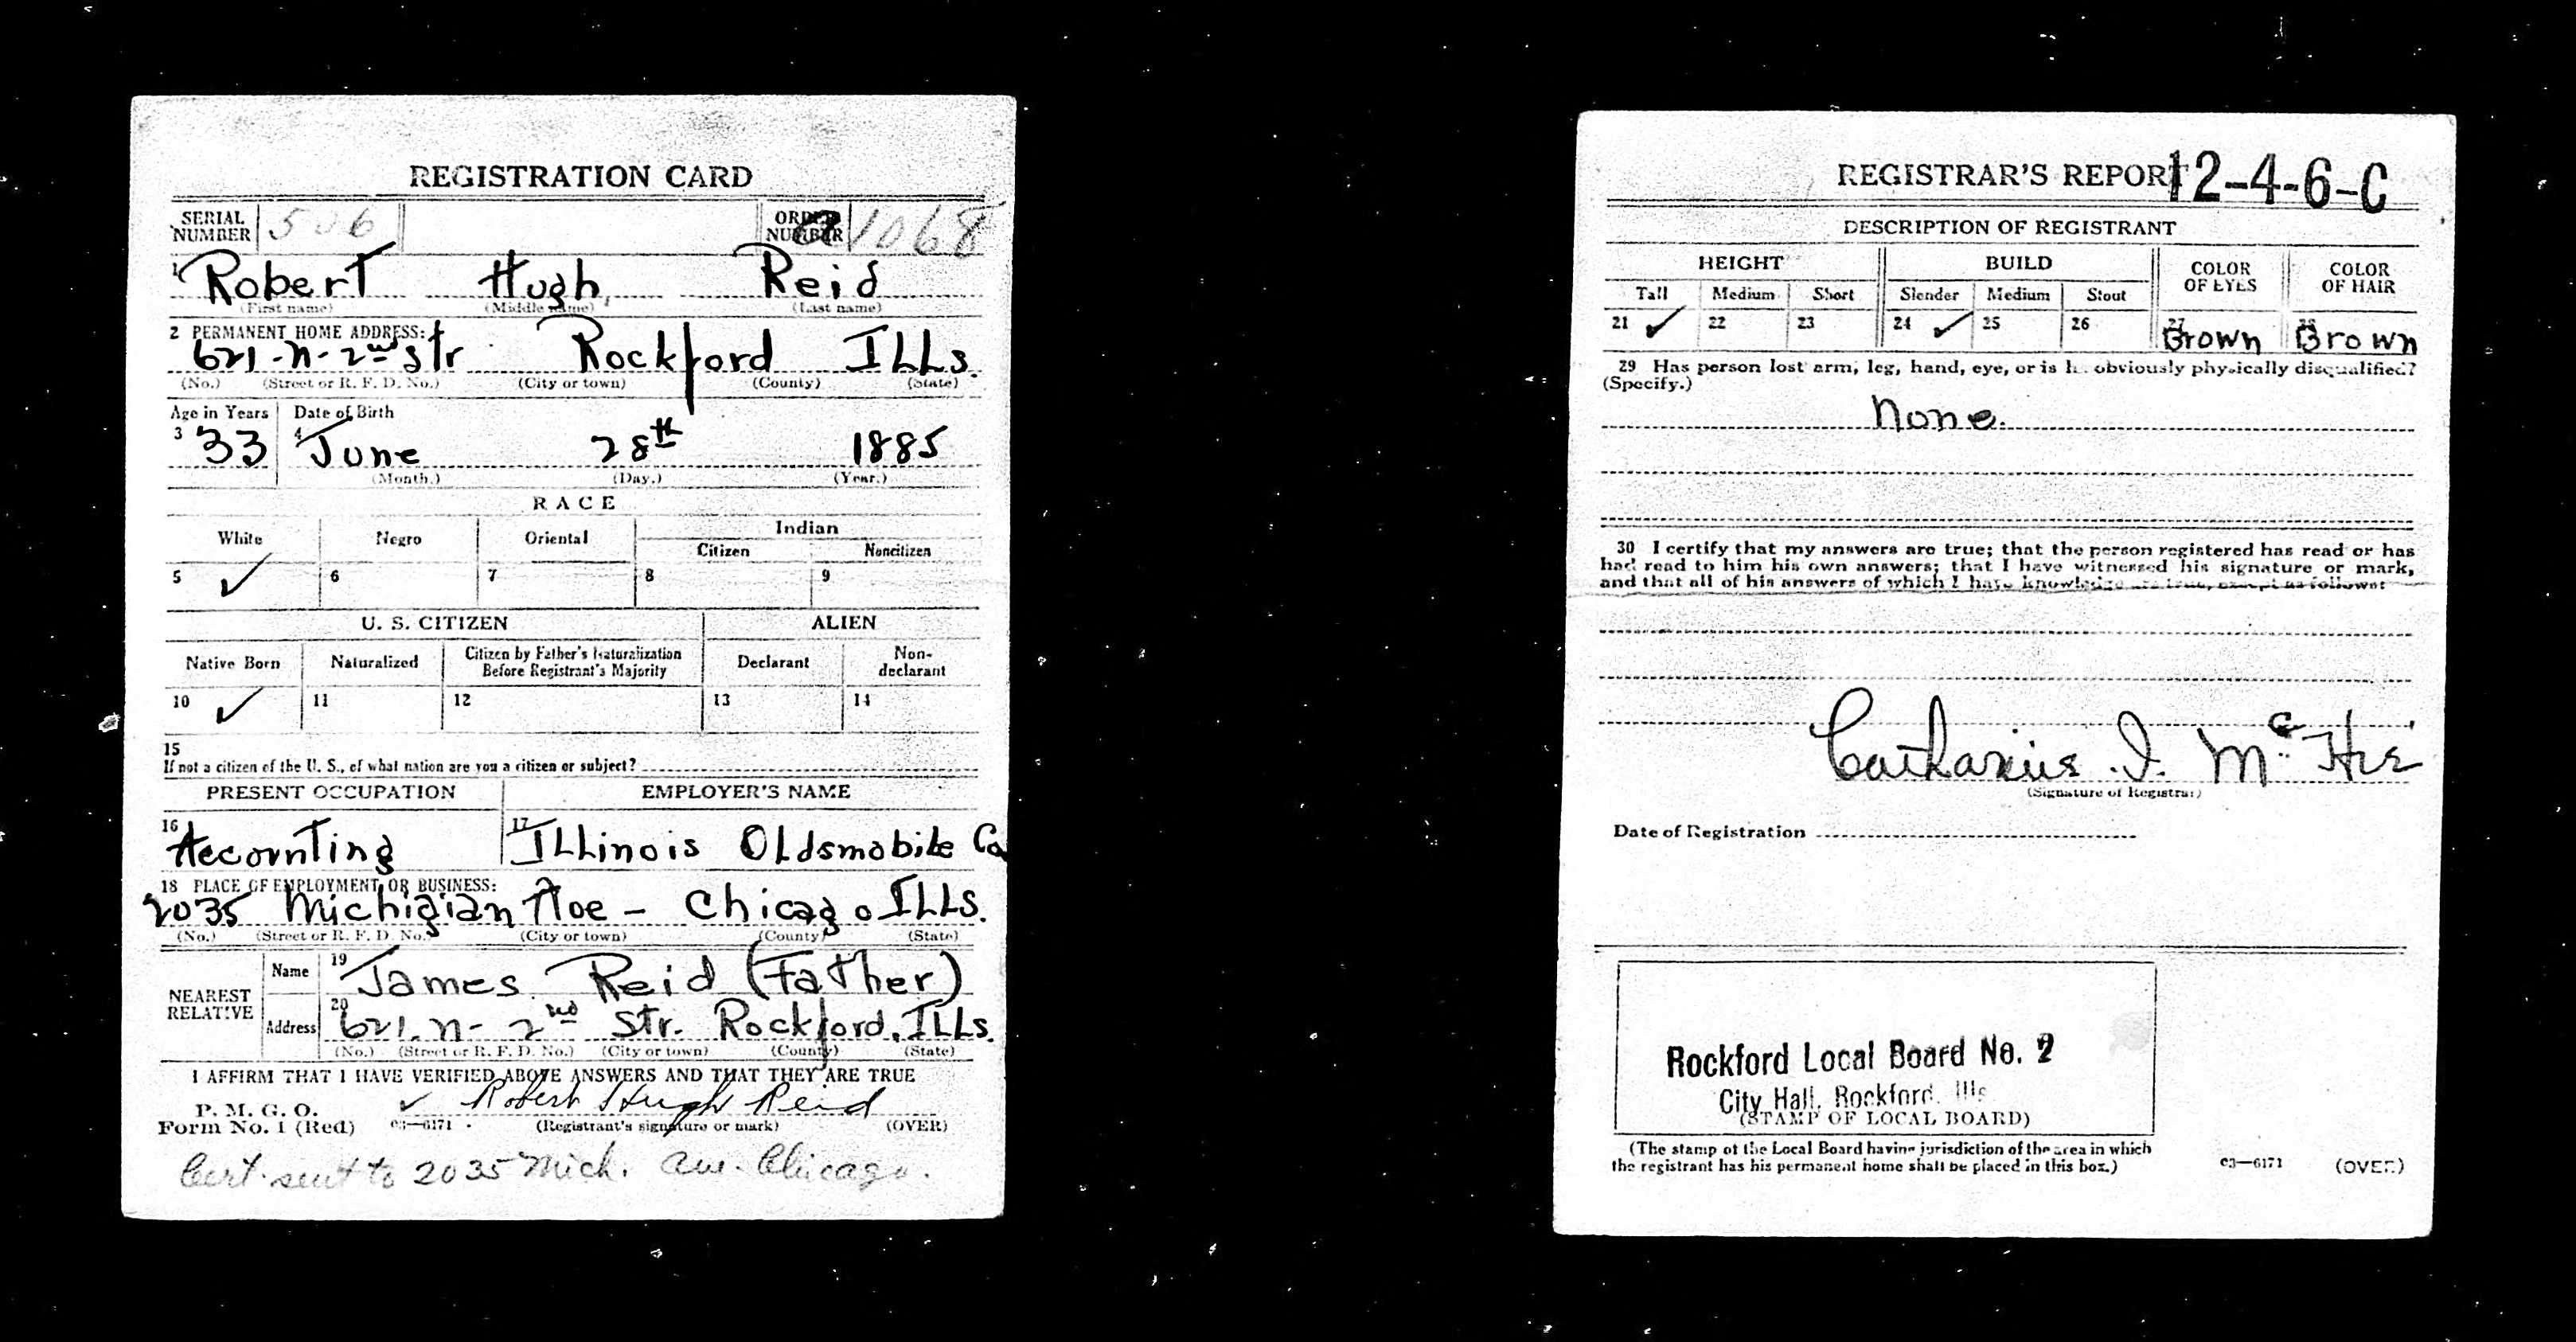 REGISTRATION CARD
SERIAL NUMBER 506 ORDER NUMBER 1068
1 Robert Hugh Reid
(First name) (Middle name) (Last name)
2 PERMANENT HOME ADDRESS:
621-N-2nd Str Rockford ILLs.
(No.) (Street or R. F. D. No.) (City or town) (County) (State)
Age in Years Date of Birth
3 33 4 June 28th 1885
(Month.) (Day.) (Year.)
RACE
White Negro Oriental Indian
Citizen Noncitizen
5 ✓ 6 7 8 9
U. S. CITIZEN ALIEN
Native Born Naturalized Citizen by Father's Naturalization Before Registrant's Majority Declarant Non-declarant
10 ✓ 11 12 13 14
15
If not a citizen of the U. S., of what nation are you a citizen or subject?
PRESENT OCCUPATION EMPLOYER'S NAME
16 Accounting 17 ILLinois OLdsmobile Co
18 PLACE OF EMPLOYMENT OR BUSINESS:
2035 Michigian Ave - Chicago ILLS.
(No.) (Street or R. F. D. No.) (City or town) (County) (State)
NEAREST RELATIVE
Name 19 James Reid (Father)
Address 20 621. N- 2nd Str. Rockford, ILLs.
(No.) (Street or R. F. D. No.) (City or town) (County) (State)
I AFFIRM THAT I HAVE VERIFIED ABOVE ANSWERS AND THAT THEY ARE TRUE
P. M. G. O.
Form No. 1 (Red) 03—6171 ✓ Robert Hugh Reid
(Registrant's signature or mark) (OVER)
Cert. sent to 2035 Mich. Ave. Chicago.
REGISTRAR'S REPORT 12-4-6-C
DESCRIPTION OF REGISTRANT
HEIGHT BUILD COLOR OF EYES COLOR OF HAIR
Tall Medium Short Slender Medium Stout
21 ✓ 22 23 24 ✓ 25 26 27 Brown 28 Brown
29 Has person lost arm, leg, hand, eye, or is he obviously physically disqualified?
(Specify.)
None.
30 I certify that my answers are true; that the person registered has read or has
had read to him his own answers; that I have witnessed his signature or mark,
and that all of his answers of which I have knowledge are true, except as follows:
I. Mc
(Signature of Registrar)
Date of Registration
Rockford Local Board No. 2
City Hall, Rockford, Ills
(STAMP OF LOCAL BOARD)
(The stamp of the Local Board having jurisdiction of the area in which
the registrant has his permanent home shall be placed in this box.)
03—6171 (OVER)